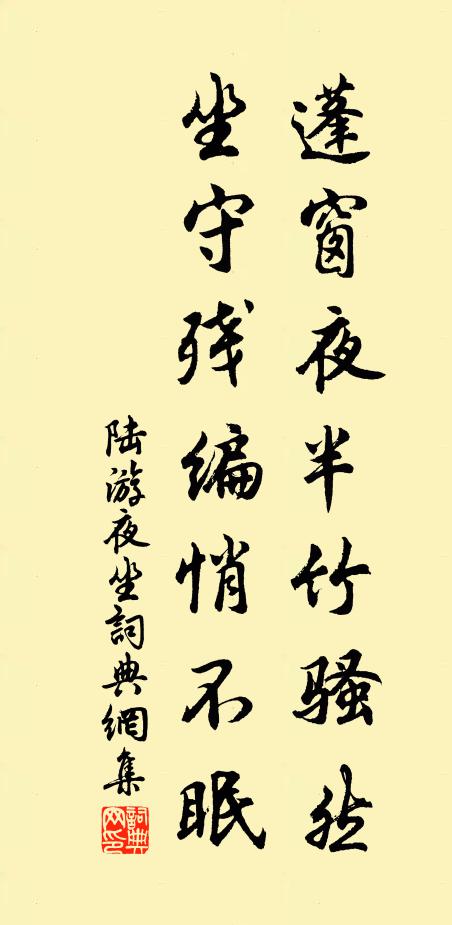 蓬窗夜半竹骚然
坐守残编悄不眠
陆游夜坐詞典網集
詞典网印